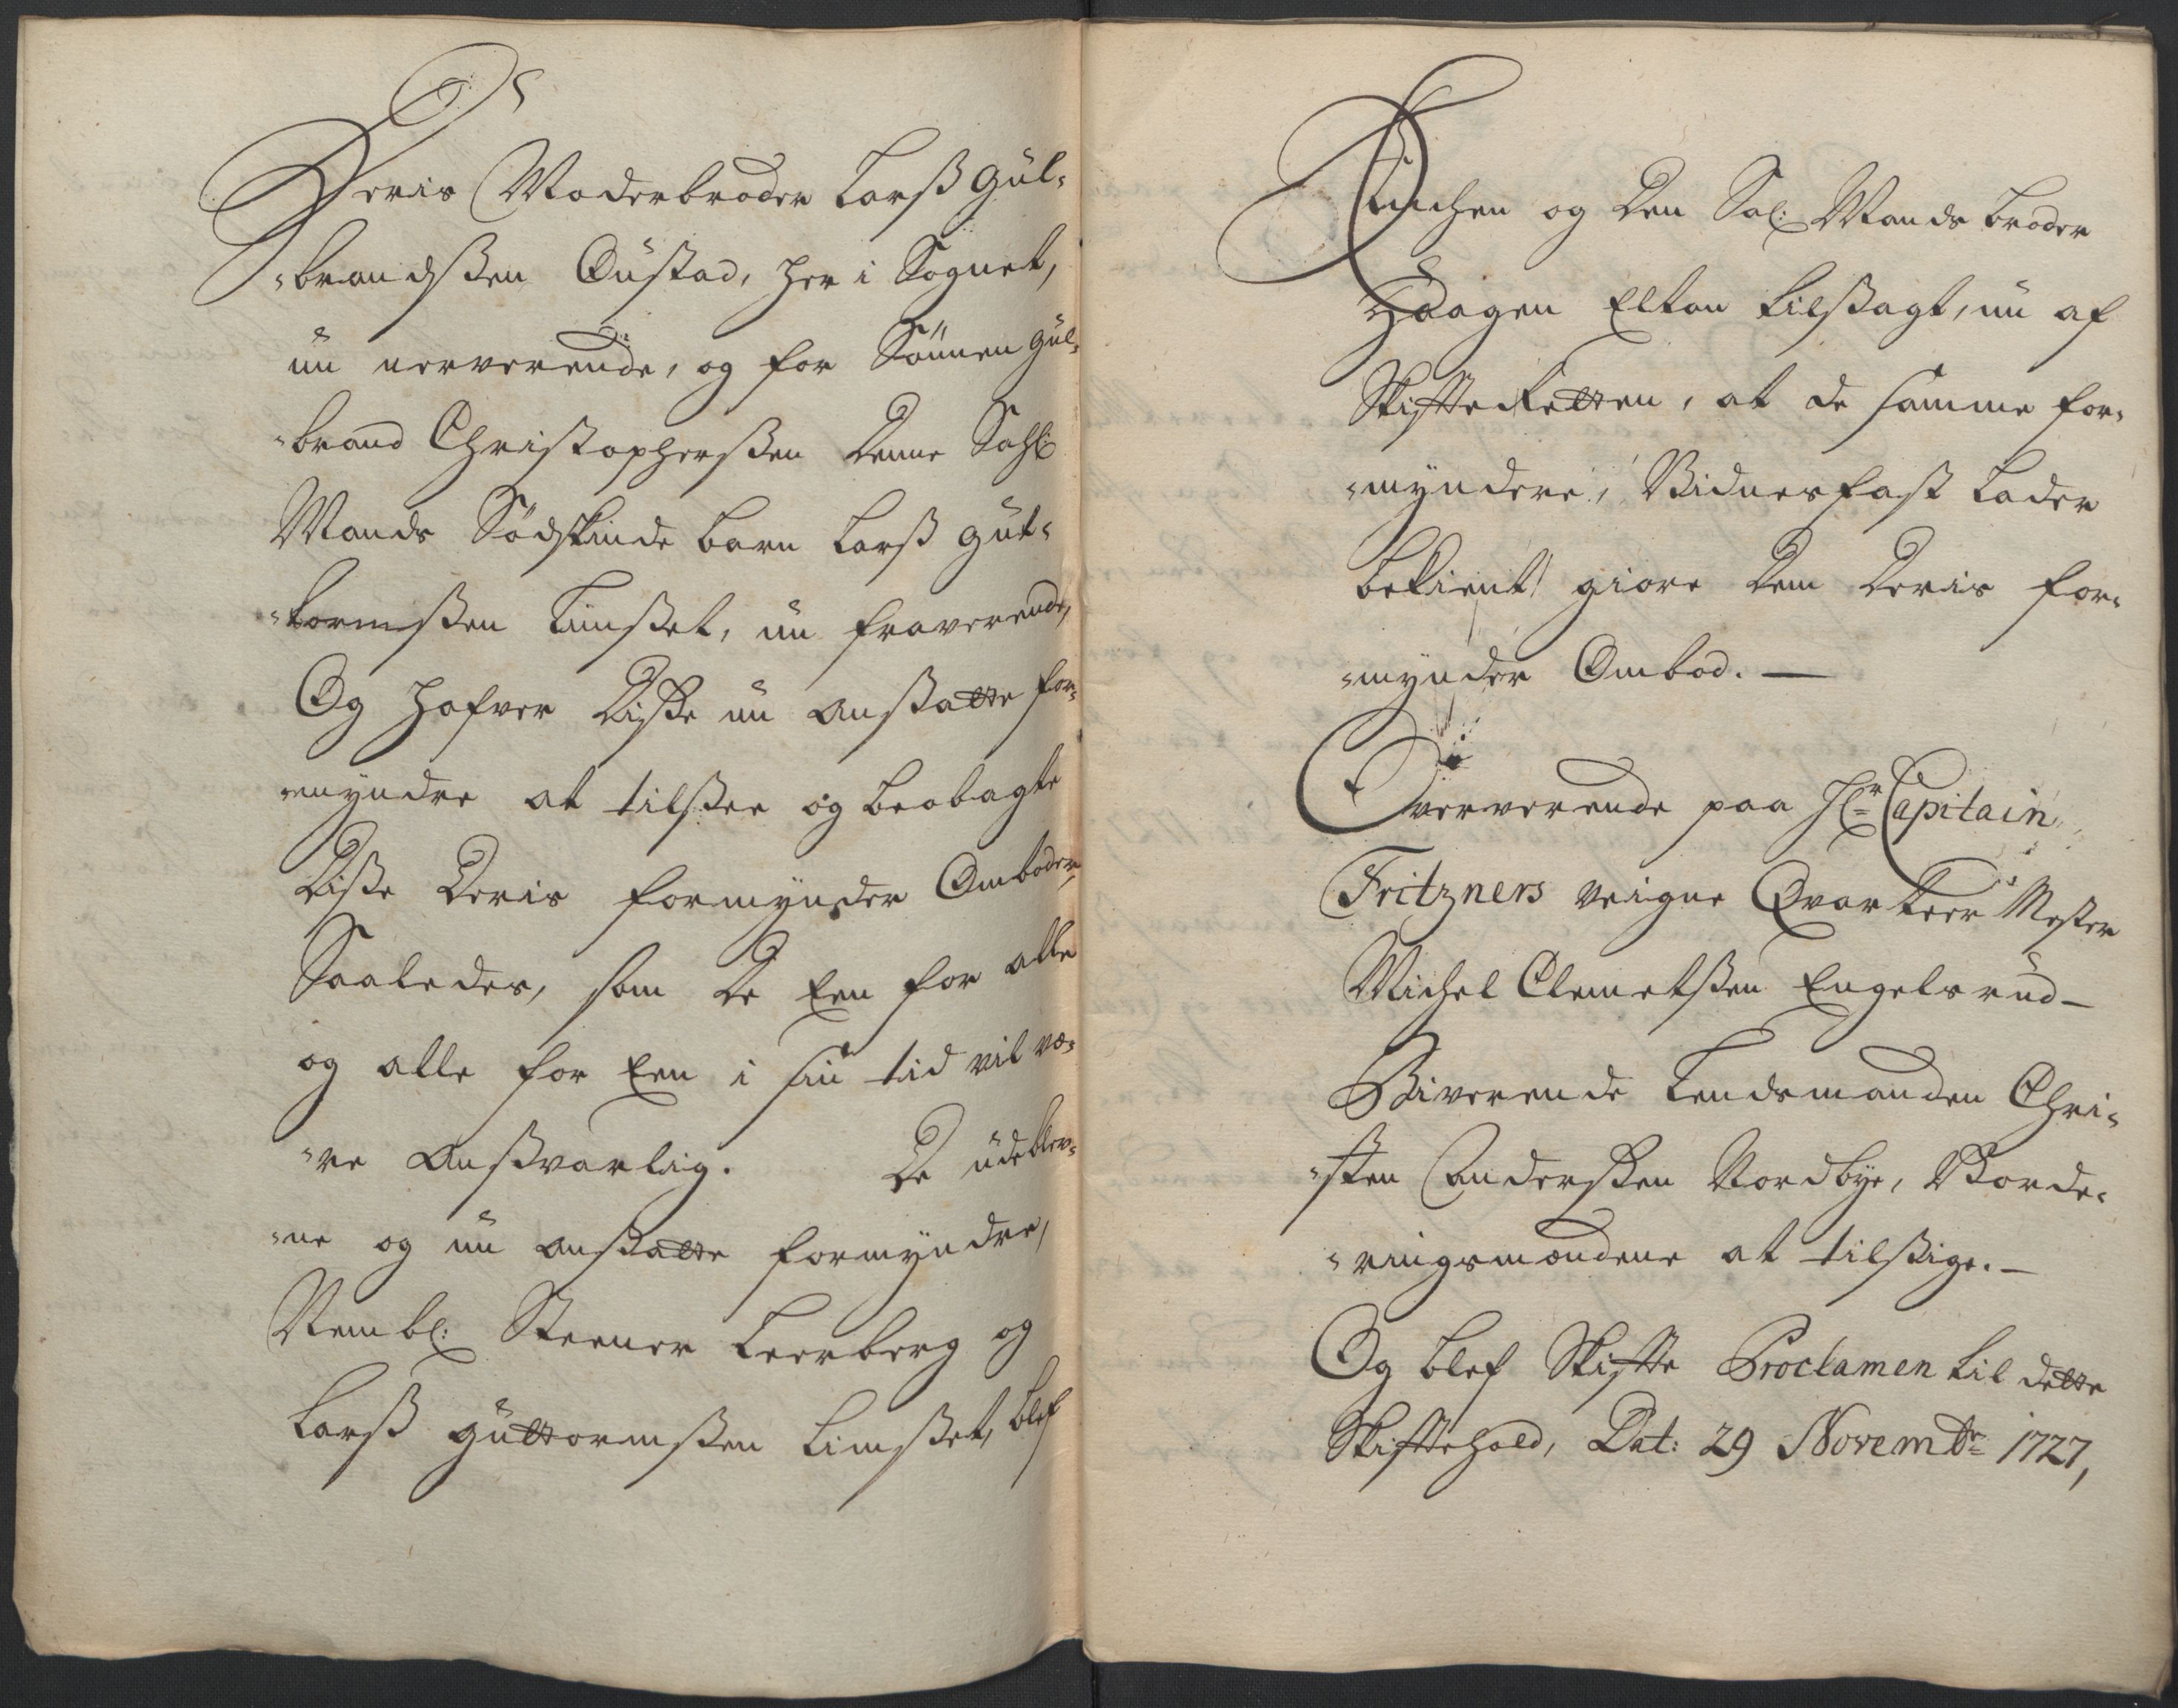 Deris Moderbroder Larß Gul-
-brandßen Oustad, her i Sognet,
nu nerverende, og for Sønnen Gul-
-brand Christopherßen denne Sahl:
Mands Södskinde barn Larß Gut-
-tormßen Limßet, nu fraverende,
Og hafver diße nu ansatte for-
-myndre at tilßee og beobagte
diße deris formynder Omboder,
Saaledes, som de Een for alle
og alle for Een i sin tid vil væ-
-re ansvarlig. De udeblev-
-ne og nu ansatte formyndre,
Nembl: Steener Leerberg og
Larß Guttormßen Limßet, blef
Enchen og den Sal: Mands broder
Haagen Elton tilsagt, nu af
Skifte Retten, at de samme for-
-myndere, Vidnesfast lader
bekient giøre dem deris for-
-mynder Ombod. —
Oververende paa Hr Capitain
Fritzners veigne Qvarteer Mester
Michel Clemetßen Engelsrud —
Biverende Lendsmanden Chri-
-sten Anderßen Nordbye, Vorde-
-ringsmændene at tilsige. —
Og blef Skifte Proclamen til dette
Skiftehold, Dat: 29 Novembr 1727,